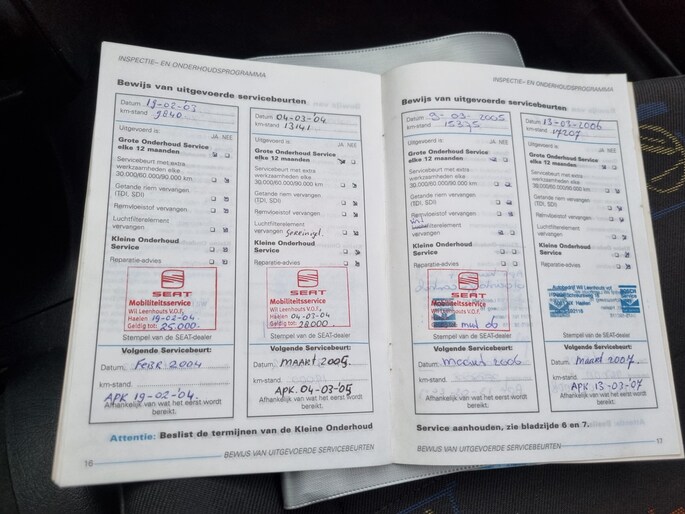 INSPECTIE- EN ONDERHOUDSPROGRAMMA
Bewijs van uitgevoerde servicebeurten
Datum 19-02-'03
km-stand 9840
Uitgevoerd is: JA NEE
Grote Onderhoud Service
elke 12 maanden
Servicebeurt met extra
werkzaamheden elke
30.000/60.000/90.000 km
Getande riem vervangen
(TDI, SDI)
Remvloeistof vervangen
Luchtfilterelement
vervangen
Kleine Onderhoud
Service
Reparatie-advies
SEAT
Mobiliteitsservice
Wil Leenhouts V.O.F.
Haelen 19-02-'04
Geldig tot: 25.000.
Stempel van de SEAT-dealer
Volgende Servicebeurt:
Datum: FEBR 2004
km-stand
APK 19-02-'04.
Afhankelijk van wat het eerst wordt
bereikt.
Datum 04-03-'04
km-stand 13141
Uitgevoerd is: JA NEE
Grote Onderhoud Service
elke 12 maanden
Servicebeurt met extra
werkzaamheden elke
30.000/60.000/90.000 km
Getande riem vervangen
(TDI, SDI)
Remvloeistof vervangen
Luchtfilterelement
vervangen gereinigd.
Kleine Onderhoud
Service
Reparatie-advies
SEAT
Mobiliteitsservice
Wil Leenhouts V.O.F.
Haelen 04-03-04
Geldig tot: 28000.
Stempel van de SEAT-dealer
Volgende Servicebeurt:
Datum: MAART 2005.
km-stand
APK. 04-03-'05
Afhankelijk van wat het eerst wordt
bereikt.
Attentie: Beslist de termijnen van de Kleine Onderhoud
16 BEWIJS VAN UITGEVOERDE SERVICEBEURTEN
INSPECTIE- EN ONDERHOUDSPROGRAMMA
Bewijs van uitgevoerde servicebeurten
Datum 9-03-2005
km-stand 15375
Uitgevoerd is: JA NEE
Grote Onderhoud Service
elke 12 maanden
Servicebeurt met extra
werkzaamheden elke
30.000/60.000/90.000 km
Getande riem vervangen
(TDI, SDI)
Remvloeistof vervangen
Luchtfilterelement
vervangen
Kleine Onderhoud
Service
Reparatie-advies
SEAT
Mobiliteitsservice
Wil Leenhouts V.O.F.
Stempel van de SEAT-dealer
Volgende Servicebeurt:
Datum: maart 2006
km-stand
Afhankelijk van wat het eerst wordt
bereikt.
Datum 13-03-2006
km-stand 17207
Uitgevoerd is: JA NEE
Grote Onderhoud Service
elke 12 maanden
Servicebeurt met extra
werkzaamheden elke
30.000/60.000/90.000 km
Getande riem vervangen
(TDI, SDI)
Remvloeistof vervangen
Luchtfilterelement
vervangen
Kleine Onderhoud
Service
Reparatie-advies
Autobedrijf Wil Leenhouts vof
Stempel van de SEAT-dealer
Volgende Servicebeurt:
Datum: Maart 2007
km-stand
APK 13-03-07
Afhankelijk van wat het eerst wordt
bereikt.
Service aanhouden, zie bladzijde 6 en 7.
BEWIJS VAN UITGEVOERDE SERVICEBEURTEN 17